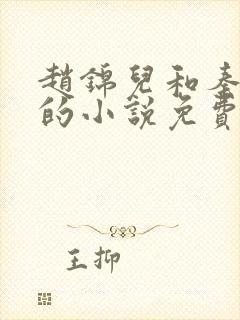 趙錦兒和秦
的小說免費
王抑